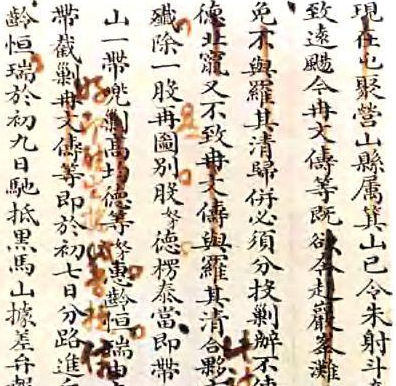 現在屯聚營山縣屬箕山已令朱射斗
致遠颺今冉文儔等既欲合走嚴峯灘
免不與羅其清歸併必須分投剿辦不使
德北竄又不致冉文儔與羅其清合夥
殲除一股再圖別股奴才德楞泰當即帶
山一帶兜剿高均德等奴才惠齡恒瑞由
帶截剿冉文儔等即於初七日分路進
齡恒瑞於初九日馳抵黑馬山據差弁